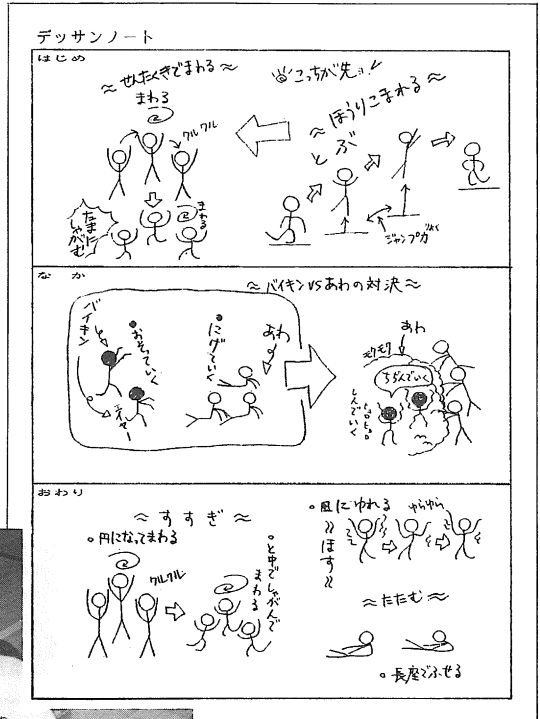 デッサンノート
はじめ
〜せんたくきでまわる〜
まわる
クルクル
まわる
たまに
しゃがむ
こっちが先ョ!
〜ほうりこまれる〜
とぶ
ジャンプ力
なか
〜バイキンVSあわの対決〜
バイキン
おそっていく
にげていく
あわ
あわ
モクモク
ちぢんでいく
しんでいく
おわり
〜すすぎ〜
円になってまわる
クルクル
と中でしゃがんで
まわる
風にゆれる
ゆらゆら
〜ほす〜
〜たたむ〜
長座でふせる